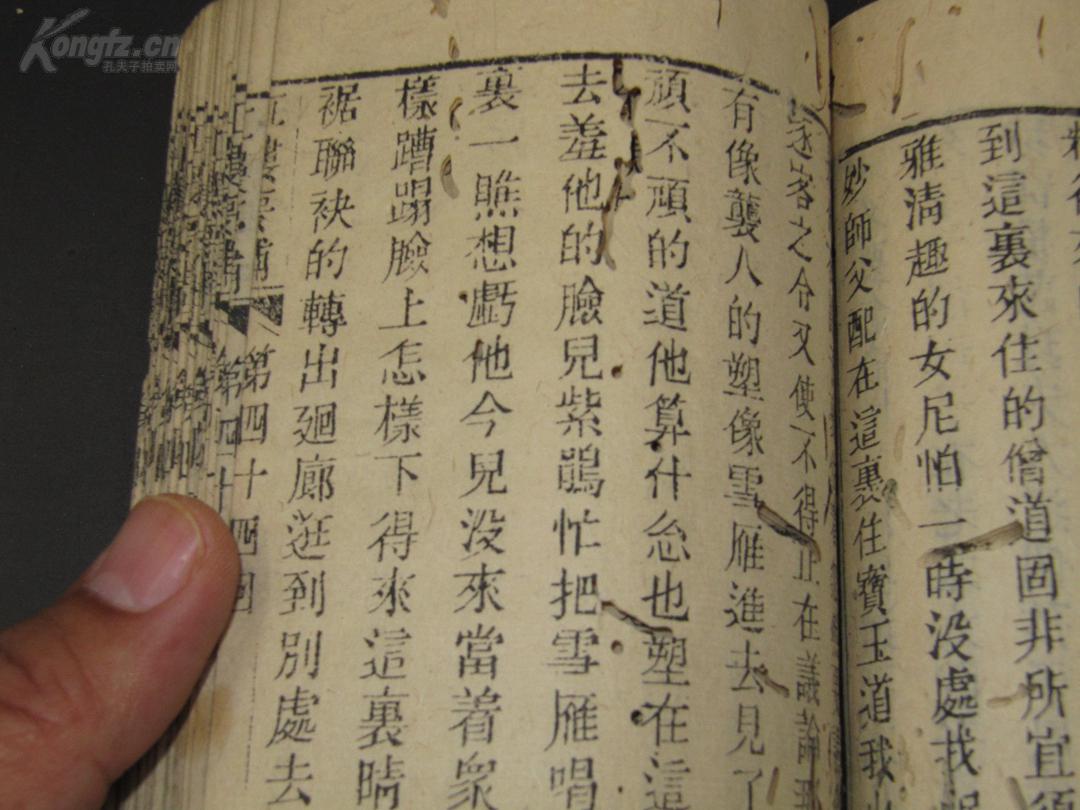 Kongfz.cn
孔夫子拍卖网
到這裏來住的僧道固非所宜
雅清趣的女尼怕一時没處找
妙師父配在這裏住寶玉道我
逐客之令又使不得正在議論
有像襲人的塑像雪雁進去見了
頑不頑的道他算什怂也塑在這
去羞他的臉兒紫鵑忙把雪雁唱
裏一瞧想虧他今兒没來當着衆
樣蹧蹋臉上怎樣下得來這裏晴
裾聯袂的轉出廻廊逛到別處去
第四十四回